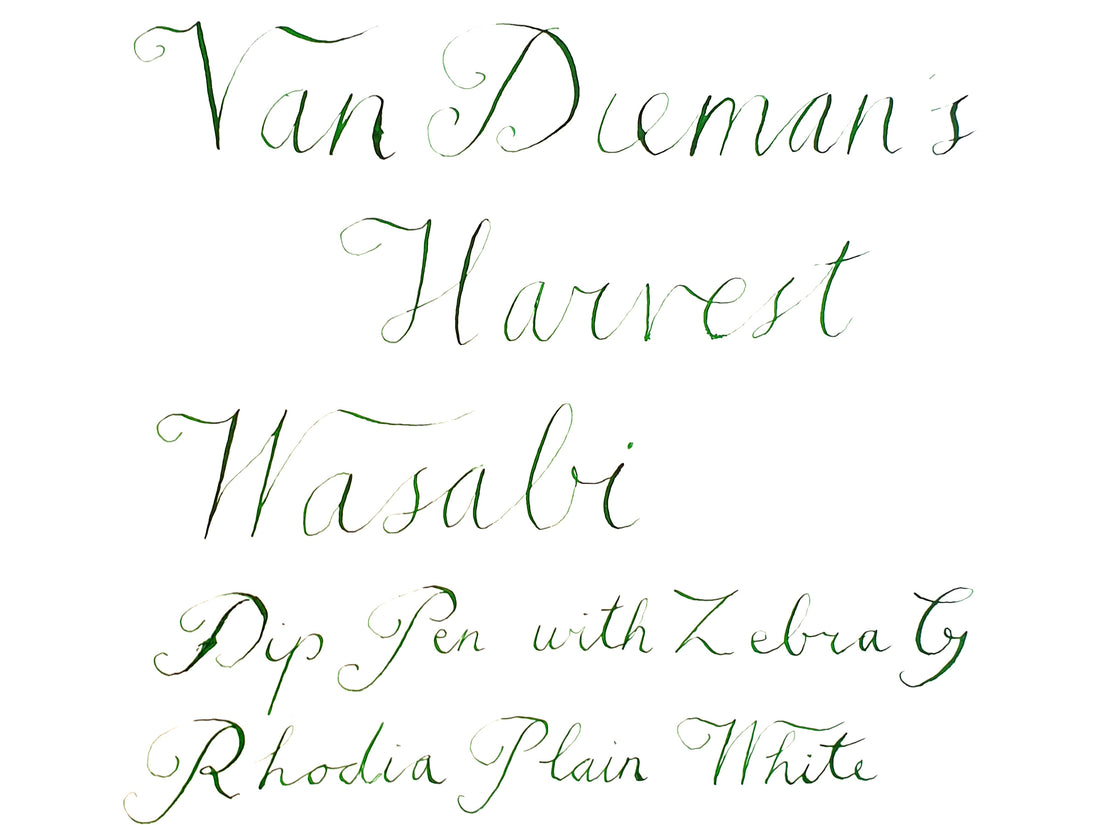 Van Dieman's
Harvest
Wasabi
Dip Pen with Zebra G
Rhodia Plain White